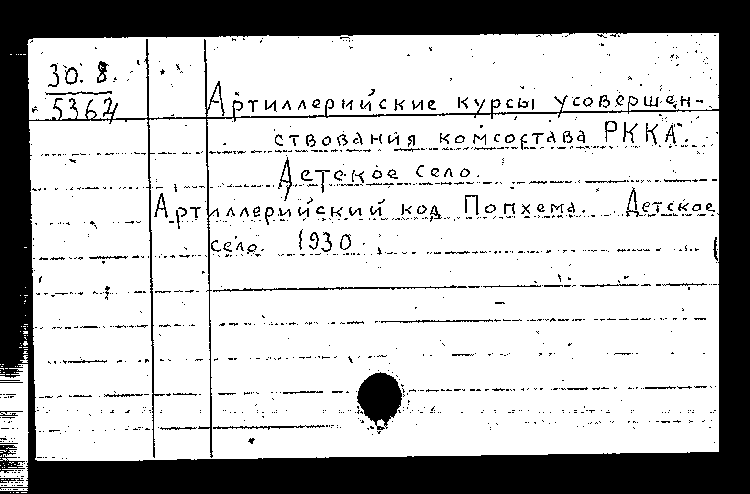 30.8.
5362
Артиллерийские курсы усовершен-
ствования комсостава РККА.
Детское село.
Артиллерийский код Попхема. Детское
село 1930.